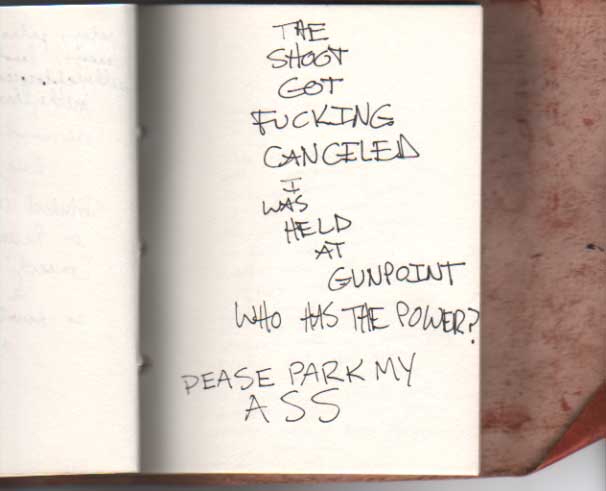 THE
SHOOT
GOT
FUCKING
CANCELED
I
WAS
HELD
AT
GUNPOINT
WHO HAS THE POWER?
PEASE PARK MY
ASS